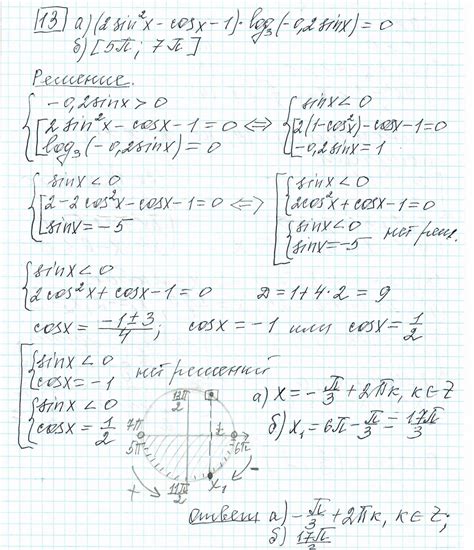 13 а) (2sin²x - cosx - 1)·log₃(-0,2sinx) = 0
б) [5π; 7π]
Решение.
{ -0,2sinx > 0
[ 2sin²x - cosx - 1 = 0
log₃(-0,2sinx) = 0
⇔
{ sinx < 0
[ 2(1-cos²x) - cosx - 1 = 0
-0,2sinx = 1
{ sinx < 0
[ 2 - 2cos²x - cosx - 1 = 0
sinx = -5
⇔
[ { sinx < 0
2cos²x + cosx - 1 = 0
{ sinx < 0
sinx = -5 нет реш.
{ sinx < 0
2cos²x + cosx - 1 = 0 D = 1 + 4·2 = 9
cosx = (-1 ± 3)/4; cosx = -1 или cosx = 1/2
[ { sinx < 0
cosx = -1 нет решений
{ sinx < 0
cosx = 1/2
13π/2
7π
5π
6π
11π/2
x₁
+
-
а) x = -π/3 + 2πk, k∈Z
б) x₁ = 6π - π/3 = 17π/3
Ответ: а) -π/3 + 2πk, k∈Z;
б) 17π/3